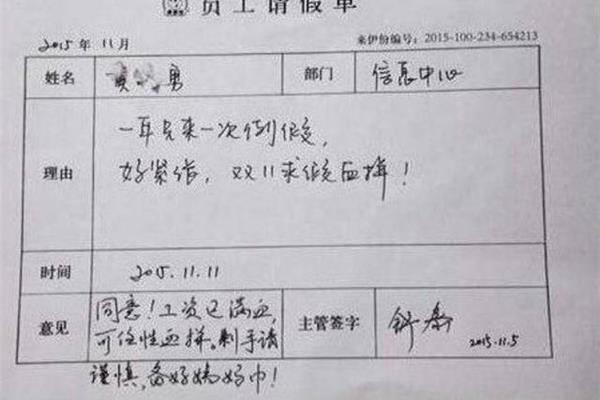 员工请假单
2015年 11月
来伊份编号：2015-100-234-654213
姓名 勇 部门 信息中心
理由 一年只来一次例假,
好紧张，双11求假血拼！
时间 2015.11.11
意见 同意！工资已满血,
可任性血拼。剁手请
谨慎,备好妈妈巾！
主管签字 2015.11.5